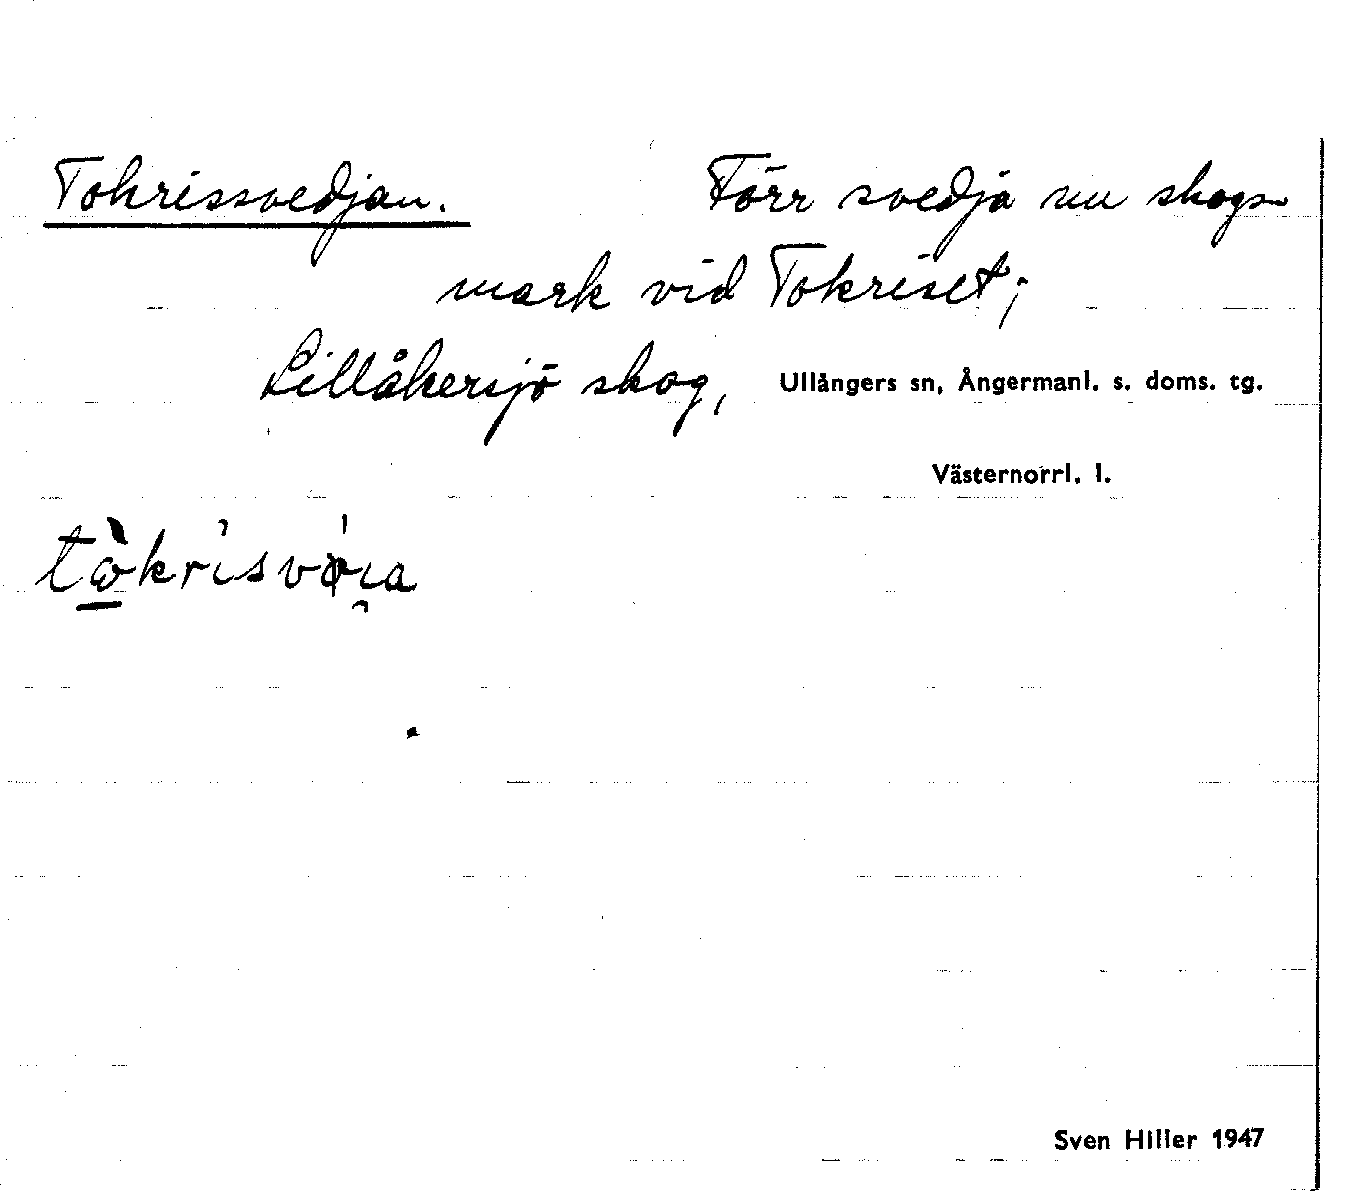 Tokrissvedjan. Förr svedja nu skogs-
mark vid Tokriset;
Lillåkersjö skog, Ullångers sn, Ångermanl. s. doms. tg.
Västernorrl. l.
Sven Hiller 1947